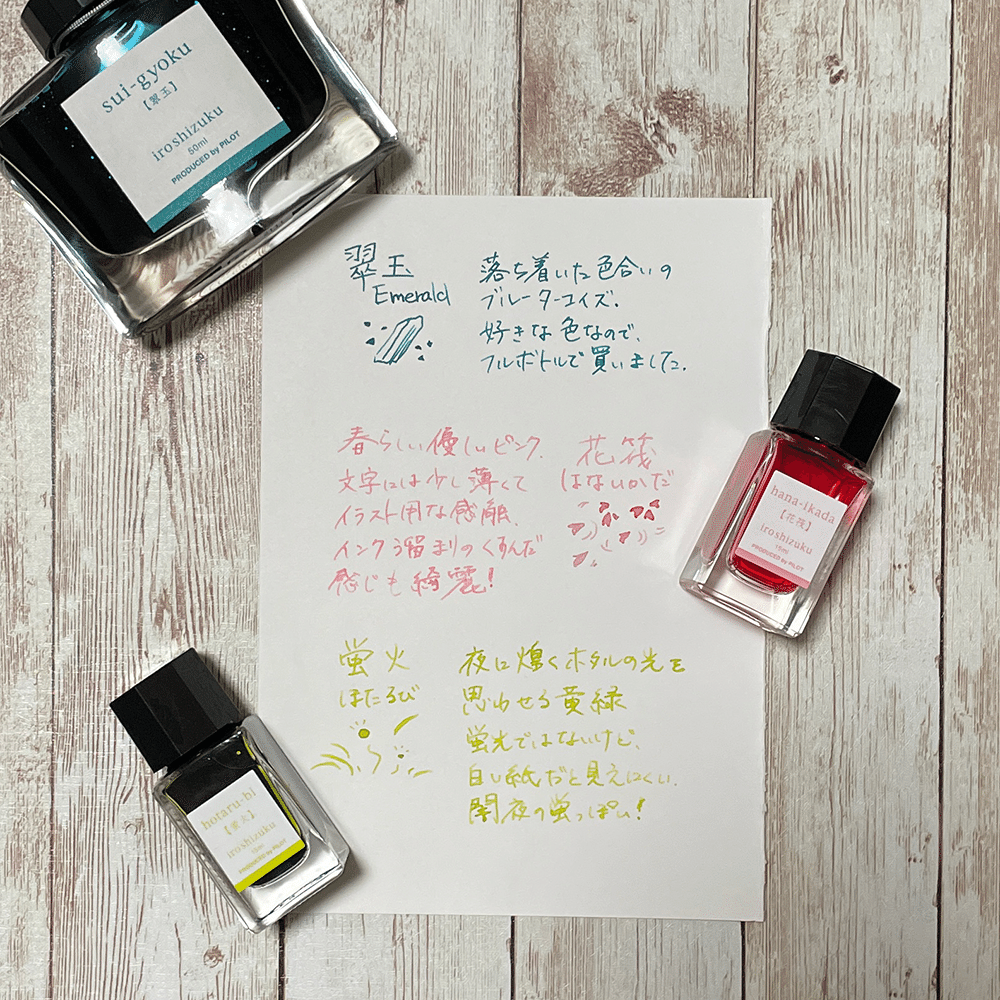 sui-gyoku
【翠玉】
iroshizuku
50ml
PRODUCED by PILOT
翠玉
Emerald
落ち着いた色合いの
ブルーターコイズ.
好きな色なので、
フルボトルで買いました.
春らしい優しいピンク.
文字には少し薄くて
イラスト用な感触.
インク溜まりのくすんだ
感じも綺麗!
花筏
はないかだ
hana-ikada
【花筏】
iroshizuku
15ml
PRODUCED by PILOT
蛍火
ほたるび
夜に煌くホタルの光を
思わせる黄緑
蛍光ではないけど、
白い紙だと見えにくい.
闇夜の蛍っぽい!
hotaru-bi
【蛍火】
iroshizuku
15ml
PRODUCED by PILOT